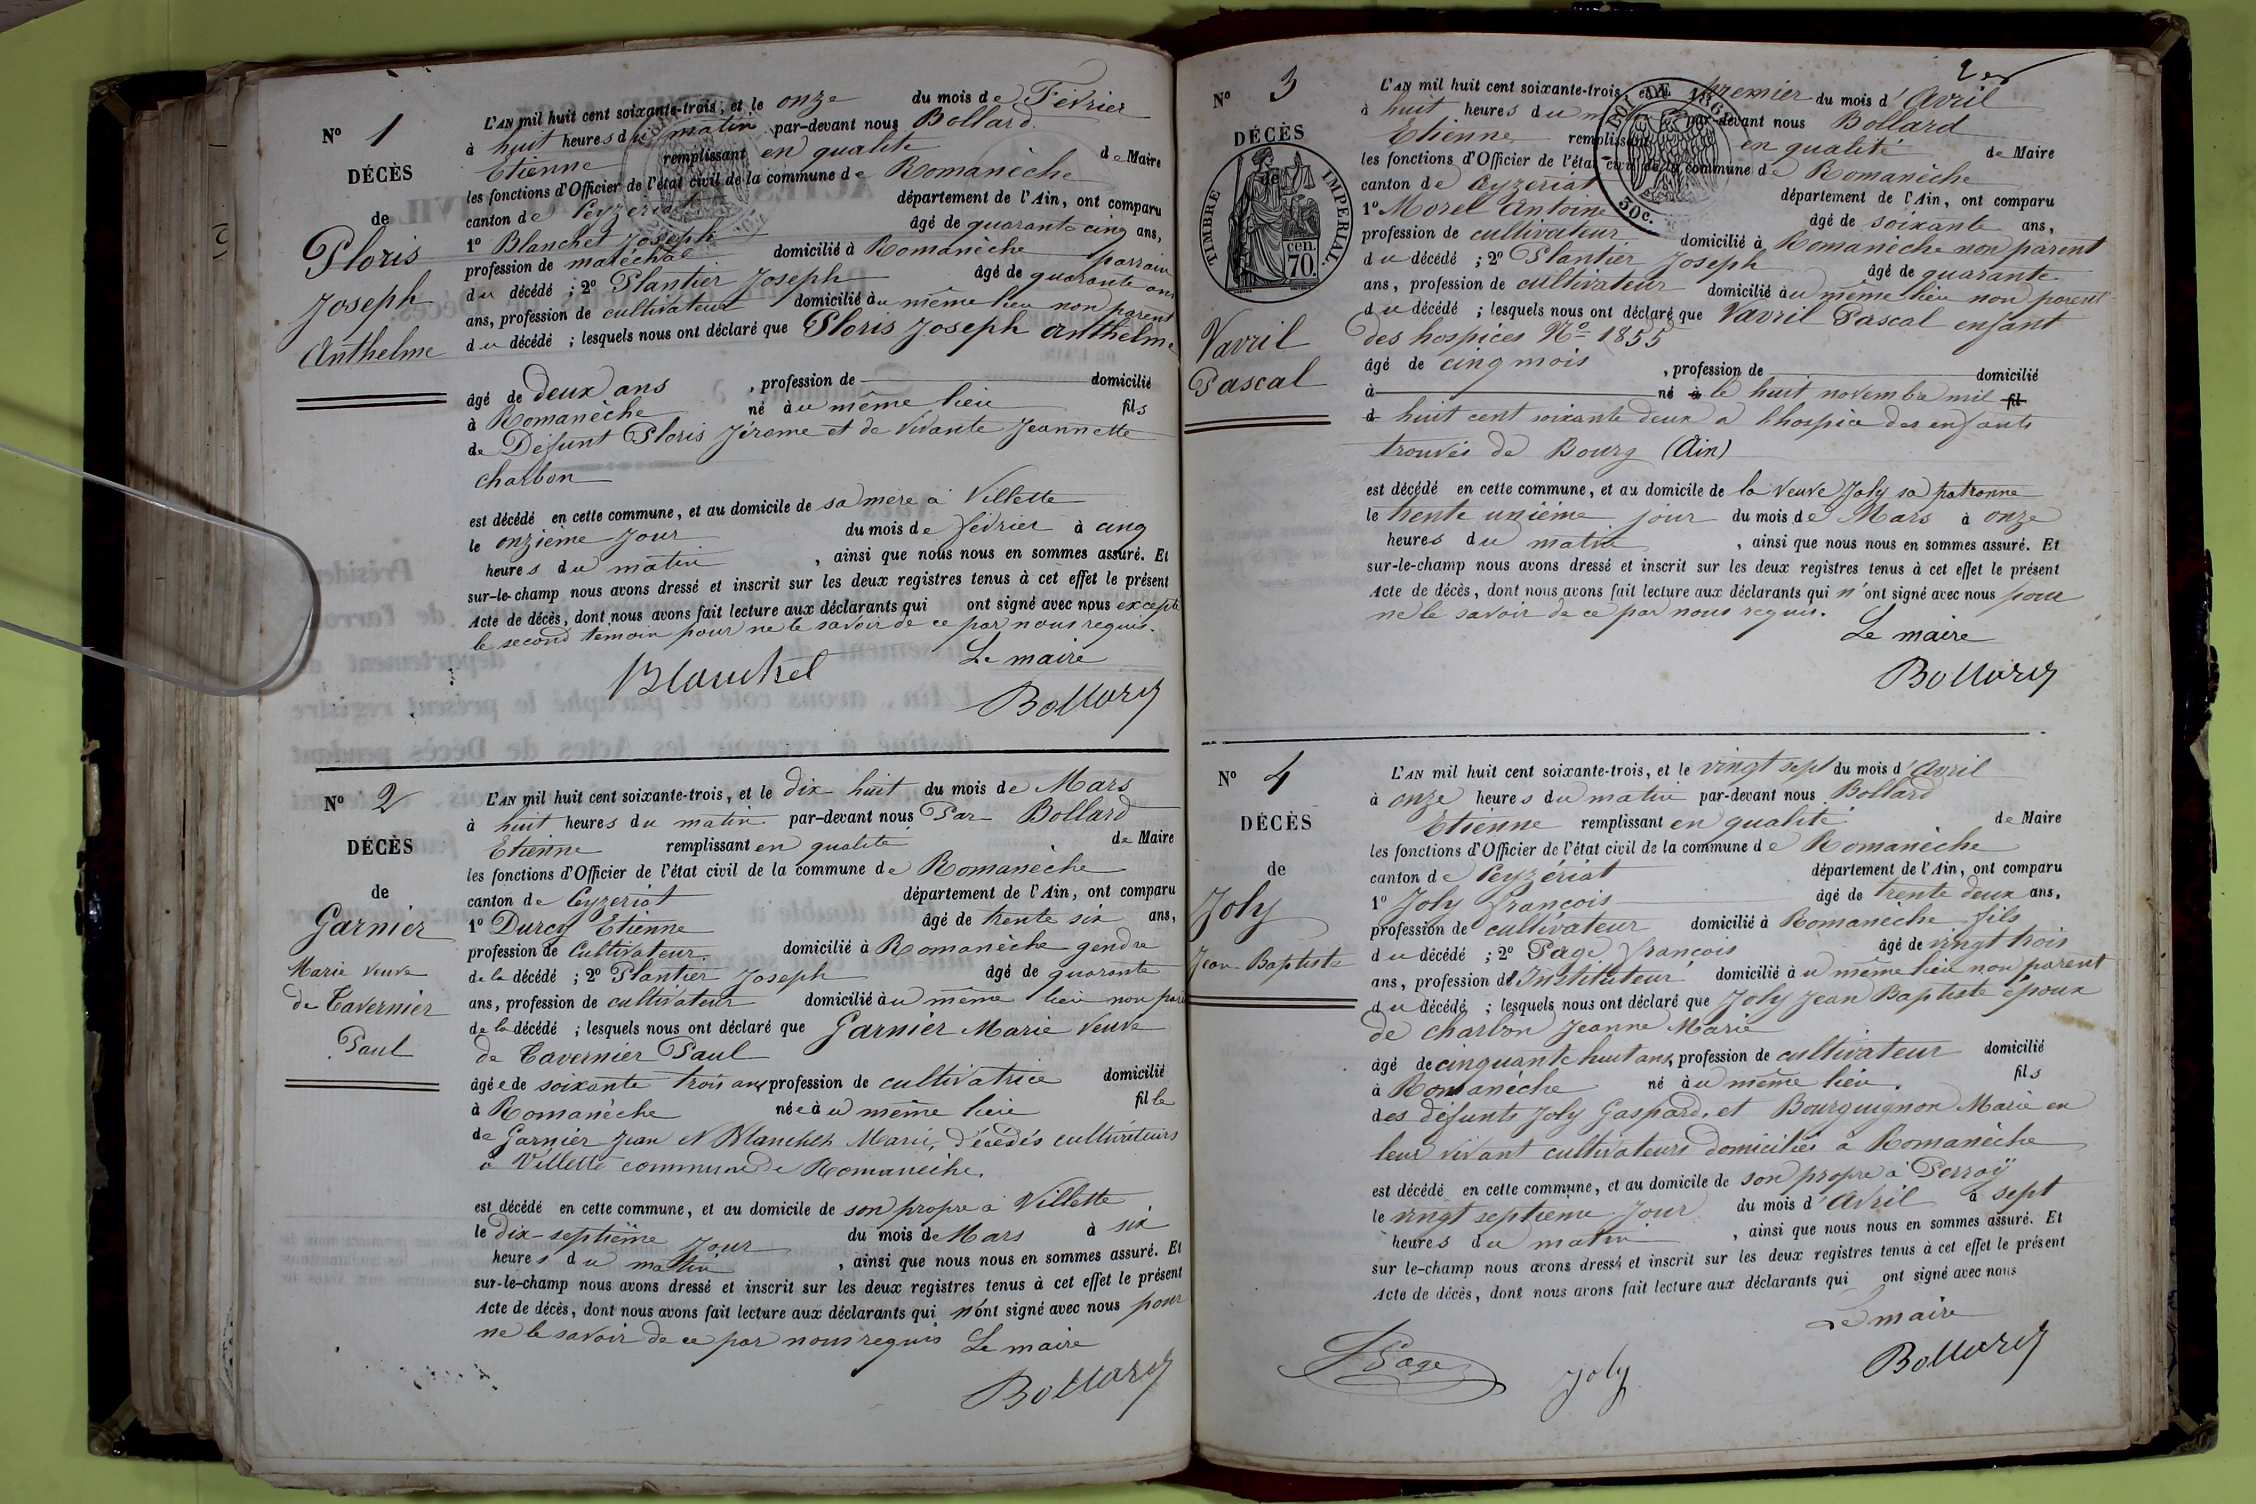 N° 1
DÉCÈS
de
Ploris
Joseph
Anthelme
L'AN mil huit cent soixante-trois, et le onze du mois de Février
à huit heures du matin par-devant nous Bollard
Etienne remplissant en qualité de Maire
les fonctions d'Officier de l'état civil de la commune de Romanèche
canton de Ceyzeriat département de l'Ain, ont comparu
1° Blanchet Joseph âgé de quarante cinq ans,
profession de maréchal domicilié à Romanèche parrain
du décédé ; 2° Plantier Joseph âgé de quarante ans
ans, profession de cultivateur domicilié au même lieu non parent
du décédé ; lesquels nous ont déclaré que Ploris Joseph anthelme
âgé de deux ans , profession de domicilié
à Romanèche né au même lieu fils
de Défunt Ploris Jérome et de vivante Jeannette
charbon
est décédé en cette commune, et au domicile de sa mère à Villette
le onzième jour du mois de février à cinq
heures du matin , ainsi que nous nous en sommes assuré. Et
sur-le-champ nous avons dressé et inscrit sur les deux registres tenus à cet effet le présent
Acte de décès, dont nous avons fait lecture aux déclarants qui ont signé avec nous excepté
le second temoin pour ne le savoir de ce par nous requis.
Le maire
Blanchet
Bollard
N° 2
DÉCÈS
de
Garnier
Marie veuve
de Tavernier
Paul
L'AN mil huit cent soixante-trois, et le dix huit du mois de Mars
à huit heures du matin par-devant nous Par Bollard
Etienne remplissant en qualité de Maire
les fonctions d'Officier de l'état civil de la commune de Romanèche
canton de Ceyzeriat département de l'Ain, ont comparu
1° Durcy Etienne âgé de trente six ans,
profession de Cultivateur domicilié à Romanèche gendre
de la décédé ; 2° Plantier Joseph âgé de quarante
ans, profession de cultivateur domicilié au même lieu non pare
de la décédé ; lesquels nous ont déclaré que Garnier Marie veuve
de Tavernier Paul
âgée de soixante trois ans profession de cultivatrice domicilié
à Romanèche née au même lieu fille
de Garnier Jean et Blanchet Marie, décédés cultivateurs
à Villette commune de Romanèche.
est décédé en cette commune, et au domicile de son propre à Villette
le dix-septième jour du mois de Mars à six
heures du matin , ainsi que nous nous en sommes assuré. Et
sur-le-champ nous avons dressé et inscrit sur les deux registres tenus à cet effet le présent
Acte de décès, dont nous avons fait lecture aux déclarants qui n'ont signé avec nous pour
ne le savoir de ce par nous requis Le maire
Bollard
N° 3
DÉCÈS
de
TIMBRE IMPERIAL
cen.
70.
Vavril
Pascal
LOI DE 186
50c.
L'AN mil huit cent soixante-trois, et le premier du mois d'Avril
à huit heures du par-devant nous Bollard
Etienne remplissant en qualité de Maire
les fonctions d'Officier de l'état civil de la commune de Romanèche
canton de Ceyzeriat département de l'Ain, ont comparu
1° Morel Antoine âgé de soixante ans,
profession de cultivateur domicilié à Romanèche non parent
du décédé ; 2° Plantier Joseph âgé de quarante
ans, profession de cultivateur domicilié au même lieu non parent
du décédé ; lesquels nous ont déclaré que Vavril Pascal enfant
des hospices N° 1855
âgé de cinq mois , profession de domicilié
à né à le huit novembre mil fil
d huit cent soixante deux a l'hospice des enfants
trouvés de Bourg (Ain)
est décédé en cette commune, et au domicile de la veuve Joly sa patronne
le trente unième jour du mois de Mars à onze
heures du matin , ainsi que nous nous en sommes assuré. Et
sur-le-champ nous avons dressé et inscrit sur les deux registres tenus à cet effet le présent
Acte de décès, dont nous avons fait lecture aux déclarants qui n'ont signé avec nous pour
ne le savoir de ce par nous requis.
Le maire
Bollard
N° 4
DÉCÈS
de
Joly
Jean-Baptiste
L'AN mil huit cent soixante-trois, et le vingt sept du mois d'Avril
à onze heures du matin par-devant nous Bollard
Etienne remplissant en qualité de Maire
les fonctions d'Officier de l'état civil de la commune de Romanèche
canton de Ceyzériat département de l'Ain, ont comparu
1° Joly françois âgé de trente deux ans,
profession de cultivateur domicilié à Romanèche fils
du décédé ; 2° Page françois âgé de vingt trois
ans, profession d'Instituteur domicilié au même lieu non parent
du décédé ; lesquels nous ont déclaré que Joly Jean Baptiste époux
de charbon Jeanne Marie
âgé de cinquante huit ans, profession de cultivateur domicilié
à Romanèche né au même lieu. fils
des défunts Joly Gaspard, et Bourguignon Marie en
leur vivant cultivateurs domiciliés à Romanèche
est décédé en cette commune, et au domicile de son propre à Perroÿ
le vingt septième jour du mois d'Avril à sept
heures du matin , ainsi que nous nous en sommes assuré. Et
sur le-champ nous avons dressé et inscrit sur les deux registres tenus à cet effet le présent
Acte de décès, dont nous avons fait lecture aux déclarants qui ont signé avec nous
Le maire
Page Joly Bollard